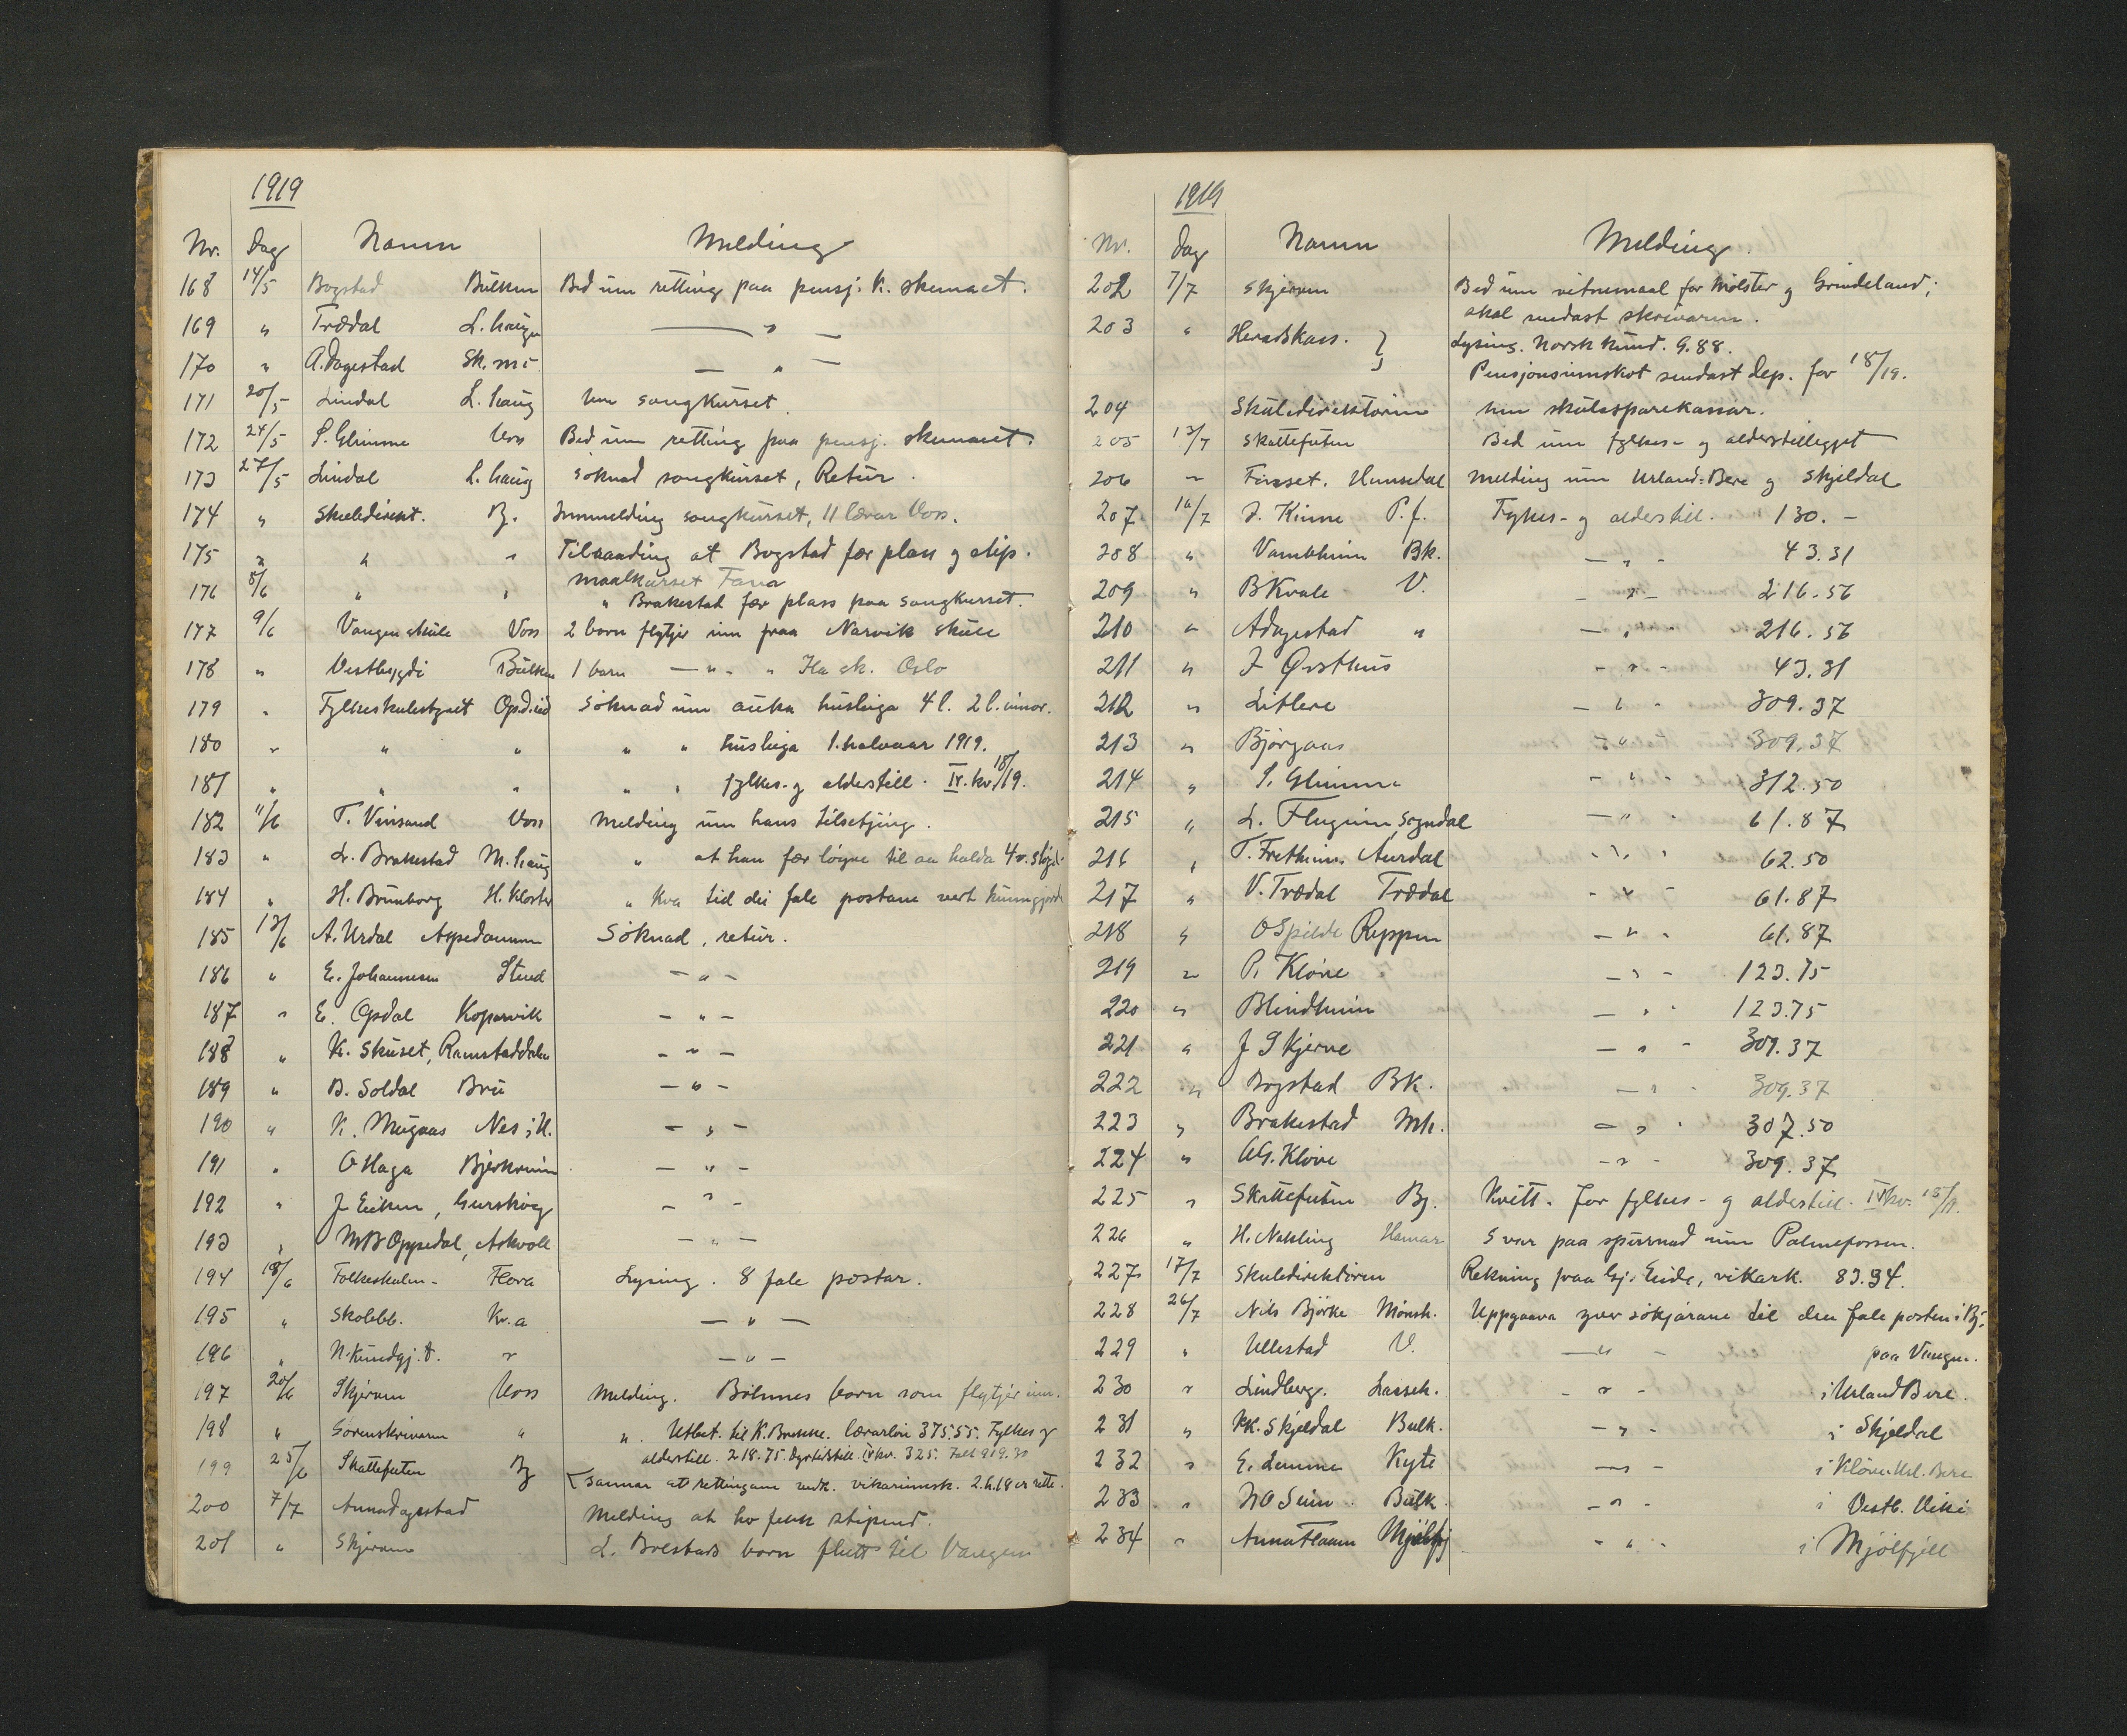 1919
Nr. Dag Namn Melding
168 14/5 Bogstad Bulken Bed um retting paa pensj. k. skemaet.
169 " Trædal L. haugen — " —
170 " A. Dagestad Sk. mö — " —
171 20/5 Lindal L. haug um songkurset.
172 24/5 S. Glimme Voss Bed um retting paa pensj. skemaet.
173 27/5 Lindal L. haug Söknad songkurset, Retur.
174 " Skuledirekt. Bj. Innmelding songkurset, 11 lærar Voss.
175 " " " Tilraading at Bogstad fær plass og stip.
maalkurset Fana
176 5/6 " " " Brakestad fær plass paa songkurset.
177 9/6 Vangen skule Voss 2 born flytjer inn fraa Narvik skule
178 " Vestbygdi Bulken 1 barn — " — " Ila sk. Oslo
179 " Fylkesskulestyret Opd. eid Söknad um auka husleiga 4 l. 2 l. innor.
180 " " " " " husleiga 1. halvaar 1919.
181 " " " " " fylkes- og alderstill. IV. kv. 18/19.
182 11/6 T. Vinsand Voss Melding um hans tilsetjing.
183 " L. Brakestad M. haug " at han fær löyve til aa halda 4 v. slöjd.
184 " H. Brunborg H. Kloster " kva tid dei fale postane vert kunngjorde
185 13/6 A. Urdal Aspedammen Söknad, retur.
186 " E. Johannesen Stend — " —
187 " E. Opdal Kopervik — " —
188 " K. Skuset, Ramstaddalen — " —
189 " B. Soldal Bru — " —
190 " K. Mugaas Nes i H. — " —
191 " O Haga Bjerkreim — " —
192 " J Eiken, Gurskög — " —
193 " M B Oppedal, Askvoll — " —
194 18/6 Folkeskulen - Flora Lysing. 8 fale postar.
195 " Skolebl. Kr.a — " —
196 " N. Kundgj. t. " — " —
197 20/6 Skjerven Voss Melding. Böhnes born som flytjer inn.
198 " Sorenskrivaren " " Utbet. til K. Brekke. lærarlön 375.55. Fylkes og
alderstill. 218.75. Dyrtidstill. IV kv. 325. Falt 919.30
199 25/6 Skattefuten Bj Sannar at rettingane vedk. vikarinnsk. 2.h.18 er rette.
200 7/7 Anna Dagestad Melding at ho fekk stipend.
201 " Skjerven L. Bolstads born flutt til Vangen
1919
Nr. Dag Namn Melding
202 7/7 Skjerven Bed um vitnemaal for Mölster og Grindeland;
skal sendast skrivaren.
203 " Heradskass. } Lysing. Norsk Kund. 9.88.
Pensjonsinnskot sendast Dep. for 18/19.
204 Skuledirektören um skulesparekassar.
205 13/7 Skattefuten Bed um fylkes- og alderstillegget
206 " Finset. Hemsedal Melding um Urland-Bere og Skjeldal
207 16/7 J. Kinne P. f. Fylkes- og alderstill. 130. -
208 " Vambheim Bk. — " - 43.31
209 " B Kvale V. - " - 216.56
210 " A Dagestad " — " - 216.56
211 " J Örsthus - " - 43.31
212 " Litlere — " - 309.37
213 " Björgaas - " - 309.37
214 " S. Glimme - " - 312.50
215 " L. Flugeim Sogndal — " - 61.87
216 " T. Fretheim. Aurdal - " - 62.50
217 " V. Trædal Trædal - " - 61.87
218 " O Spilde Reppen — " - 61.87
219 " P. Klöve — " - 123.75
220 " Blindheim — " - 123.75
221 " J Skjerve — " - 309.37
222 " Bogstad BK. — " - 309.37
223 " Brakestad Mh. — " - 307.50
224 " AG. Klöve - " - 309.37
225 " Skattefuten Bj. Kvitt. for fylkes- og alderstill. IV kv. 18/19.
226 " H. Nakling Hamar Svar paa spurnad um Palmefossen.
227 17/7 Skuledirektören Rekning fraa Gj. Eide, vikark. 83.34.
228 26/7 Nils Björke Mönsh. Uppgaava yver sökjarane til den fale posten i Bj.
229 " Ullestad V. — " - paa Vangen.
230 " Lindberg. Lasseh. - " - i Urland Bere.
231 " Kk. Skjeldal Bulk. — " - i Skjeldal
232 " E. Lemme Kyte — " - i Klöve Url. Bere
233 " N O Seim Bulk. — " - i Vestb. Viki
234 " Anna Flaam Mjölfj — " - i Mjölfjell